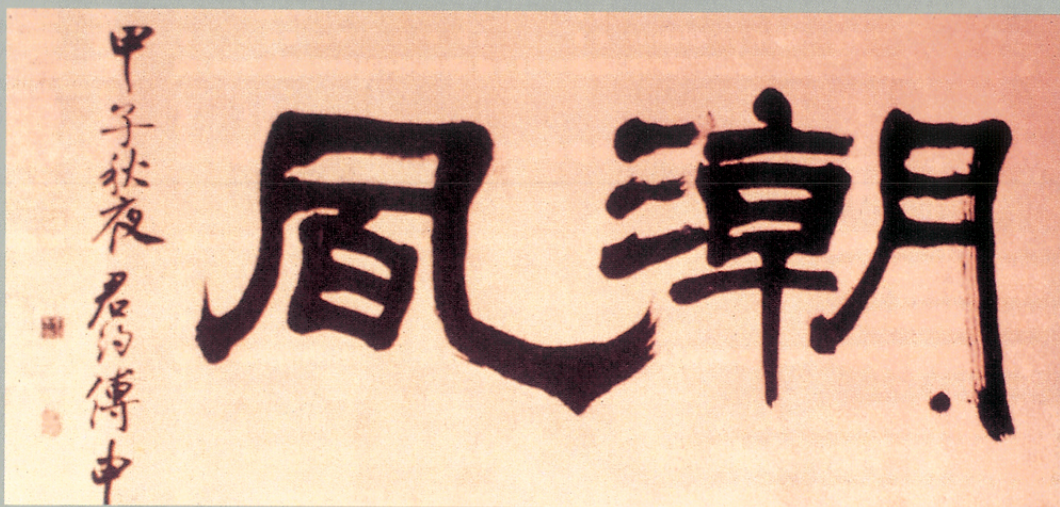 潮風
甲子秋夜 君約傅申